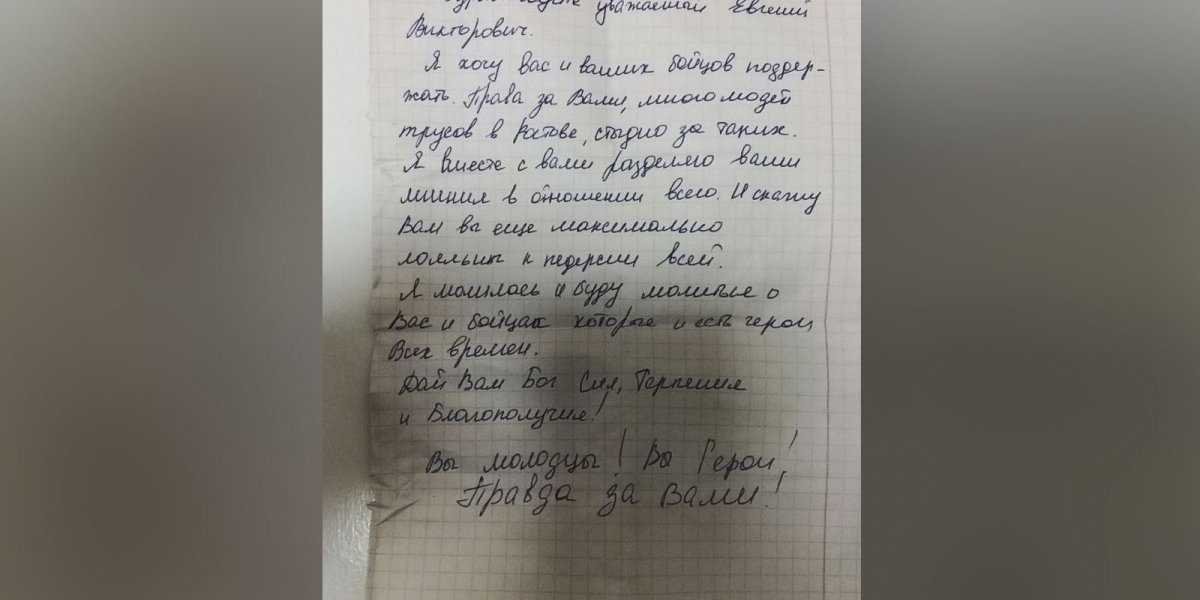 уважаемый Евгений
Викторович.
Я хочу вас и ваших бойцов поддер-
жать. Права за Вами, много людей
трусов в Ростове, стыдно за таких.
Я вместе с вами разделяю ваши
мнения в отношении всего. И скажу
Вам вы еще максимально
лояльны к педерсии всей.
Я молилась и буду молится о
Вас и бойцах которые и есть герои
Всех времен.
Дай Вам Бог Сил, Терпения
и Благополучия!
Вы молодцы! Вы Герои!
Правда за Вами!